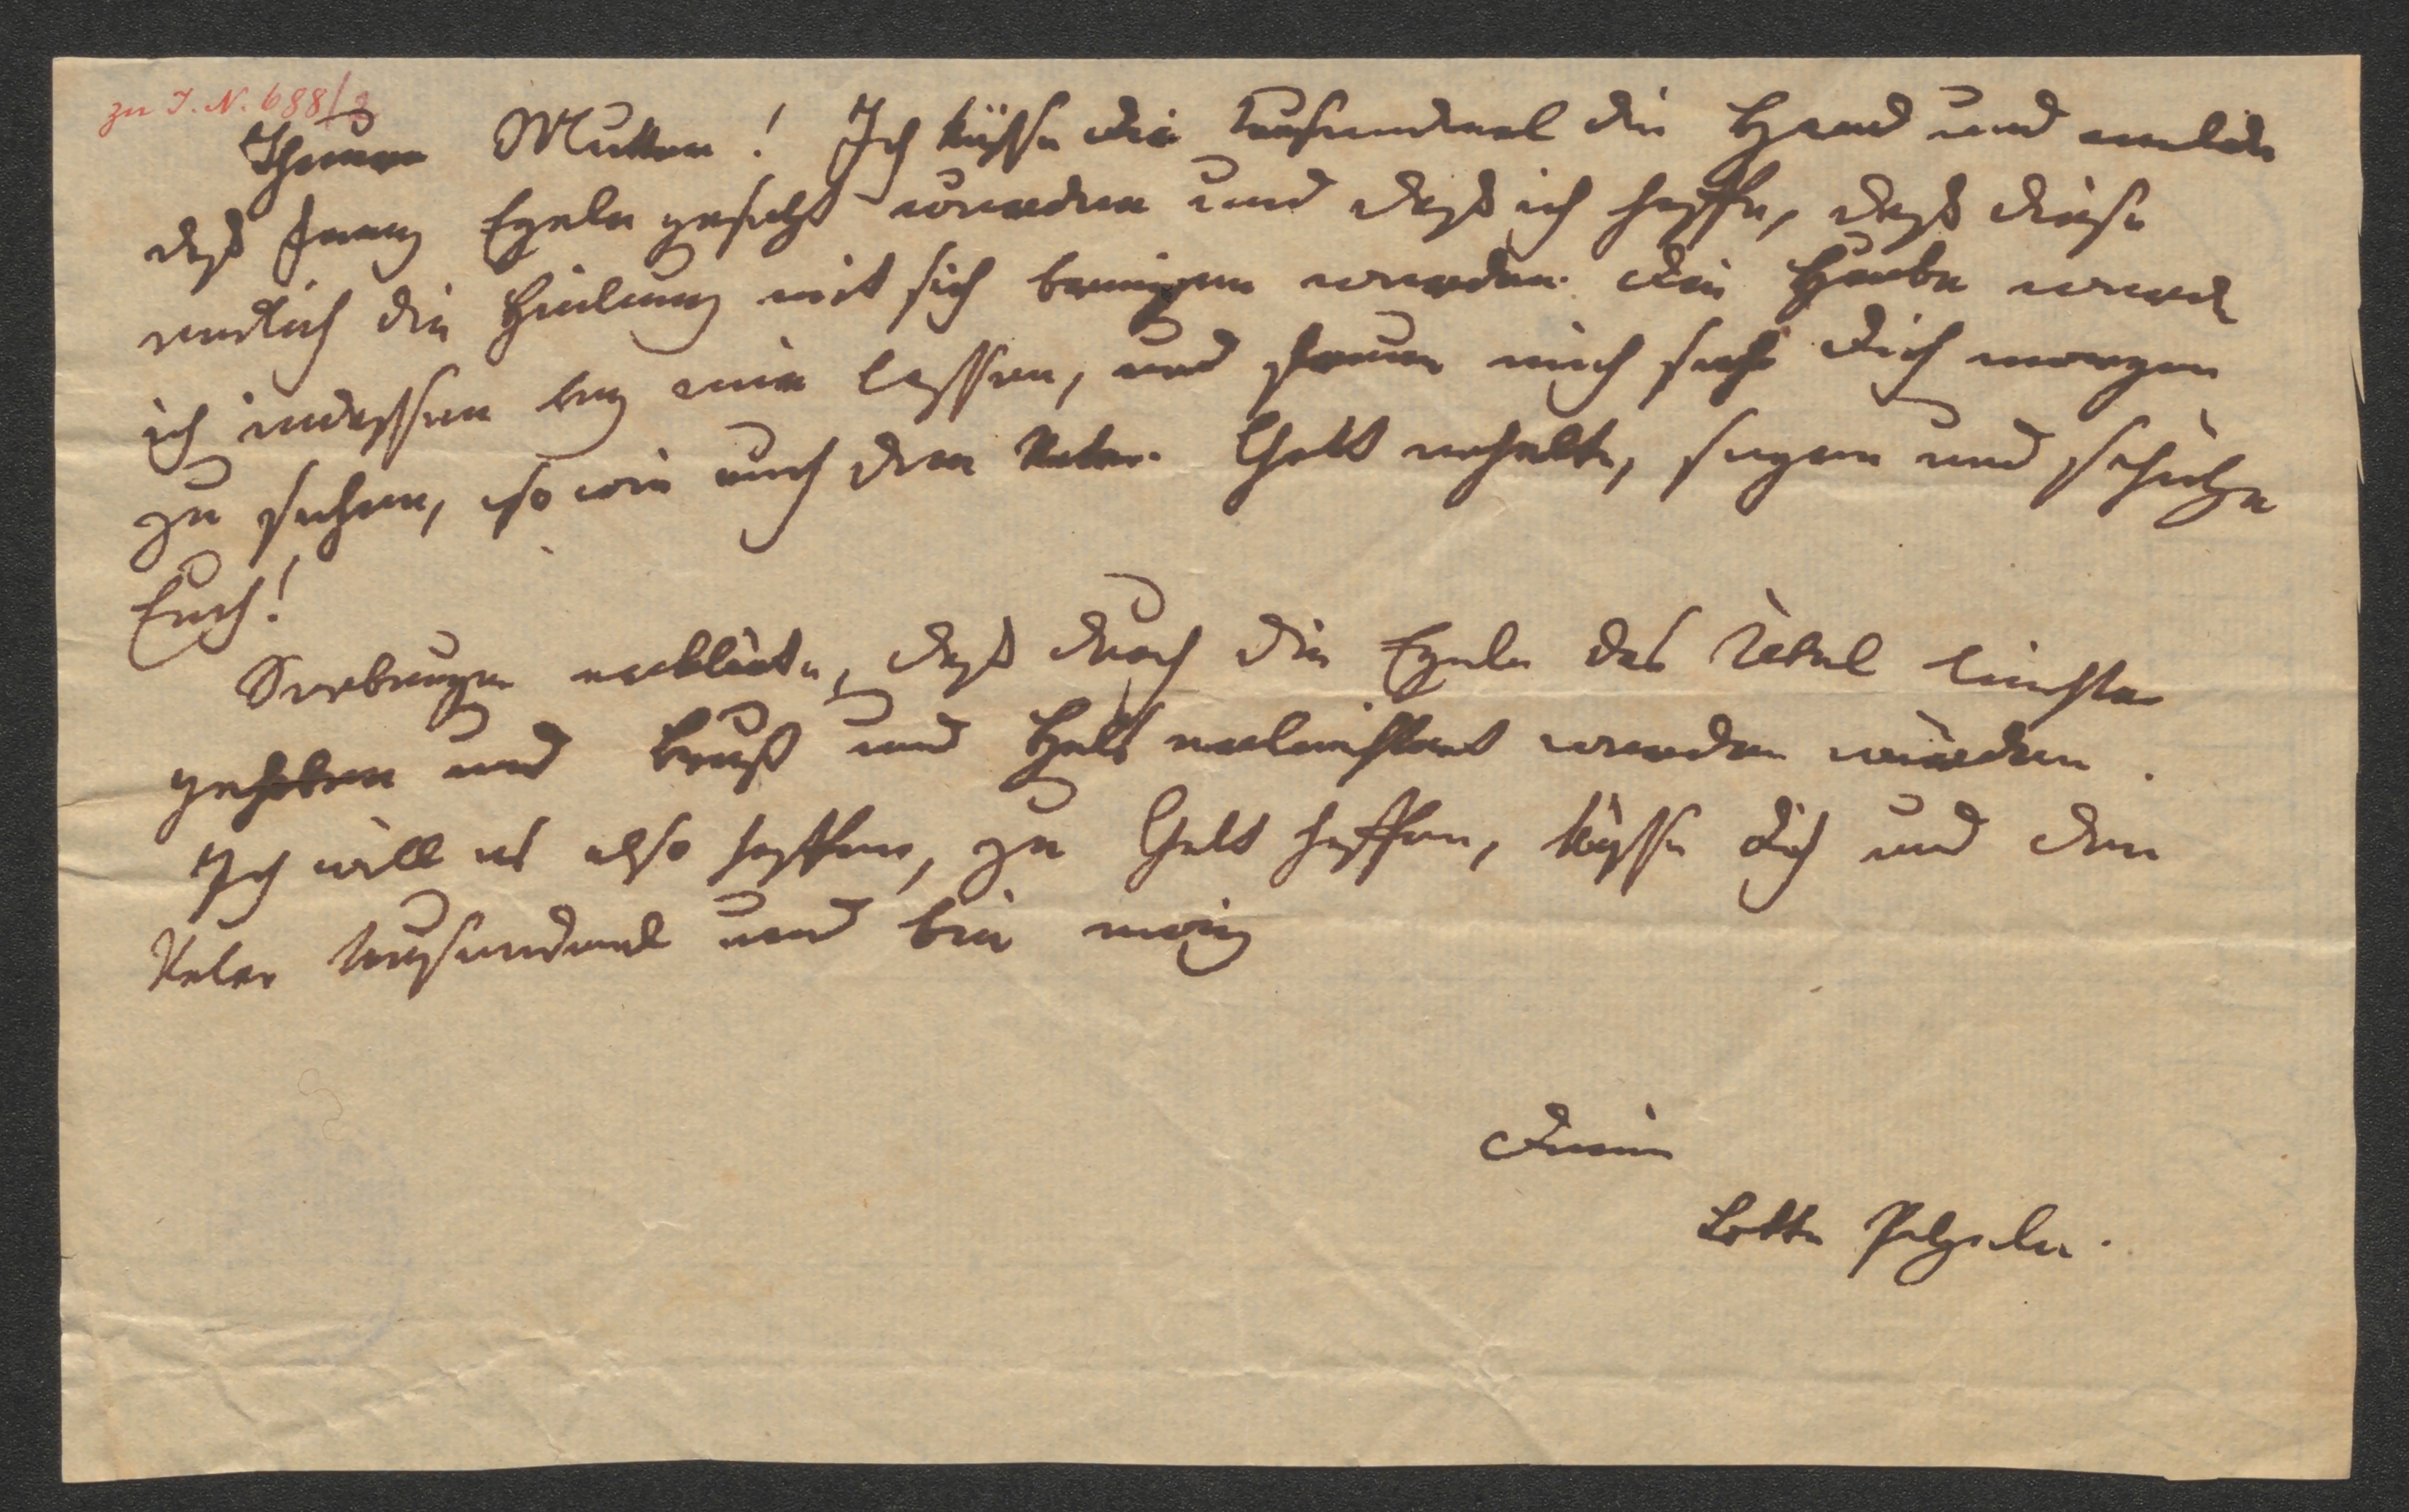 zu I. N. 688/2
Theure Mutter! Ich küsse Dir tausendmal die Hand und melde
daß Franz Egeln gesetzt werden und daß ich hoffe, daß diese
endlich die Heilung mit sich bringen werden. Die Haube werde
ich indessen bey mir lassen, und freue mich sehr Dich morgen
zu sehen, so wie auch den Vater. Gott erhalte, segne und schütze
Euch!
erklärte, daß durch die Egeln das Uebel leichter
gehoben und Brust und Hals erleichtert werden würden.
Ich will es also hoffen, zu Gott hoffen, küsse Dich und den
Vater tausendmal und bin ewig
Deine
Lotte Pelzeln.